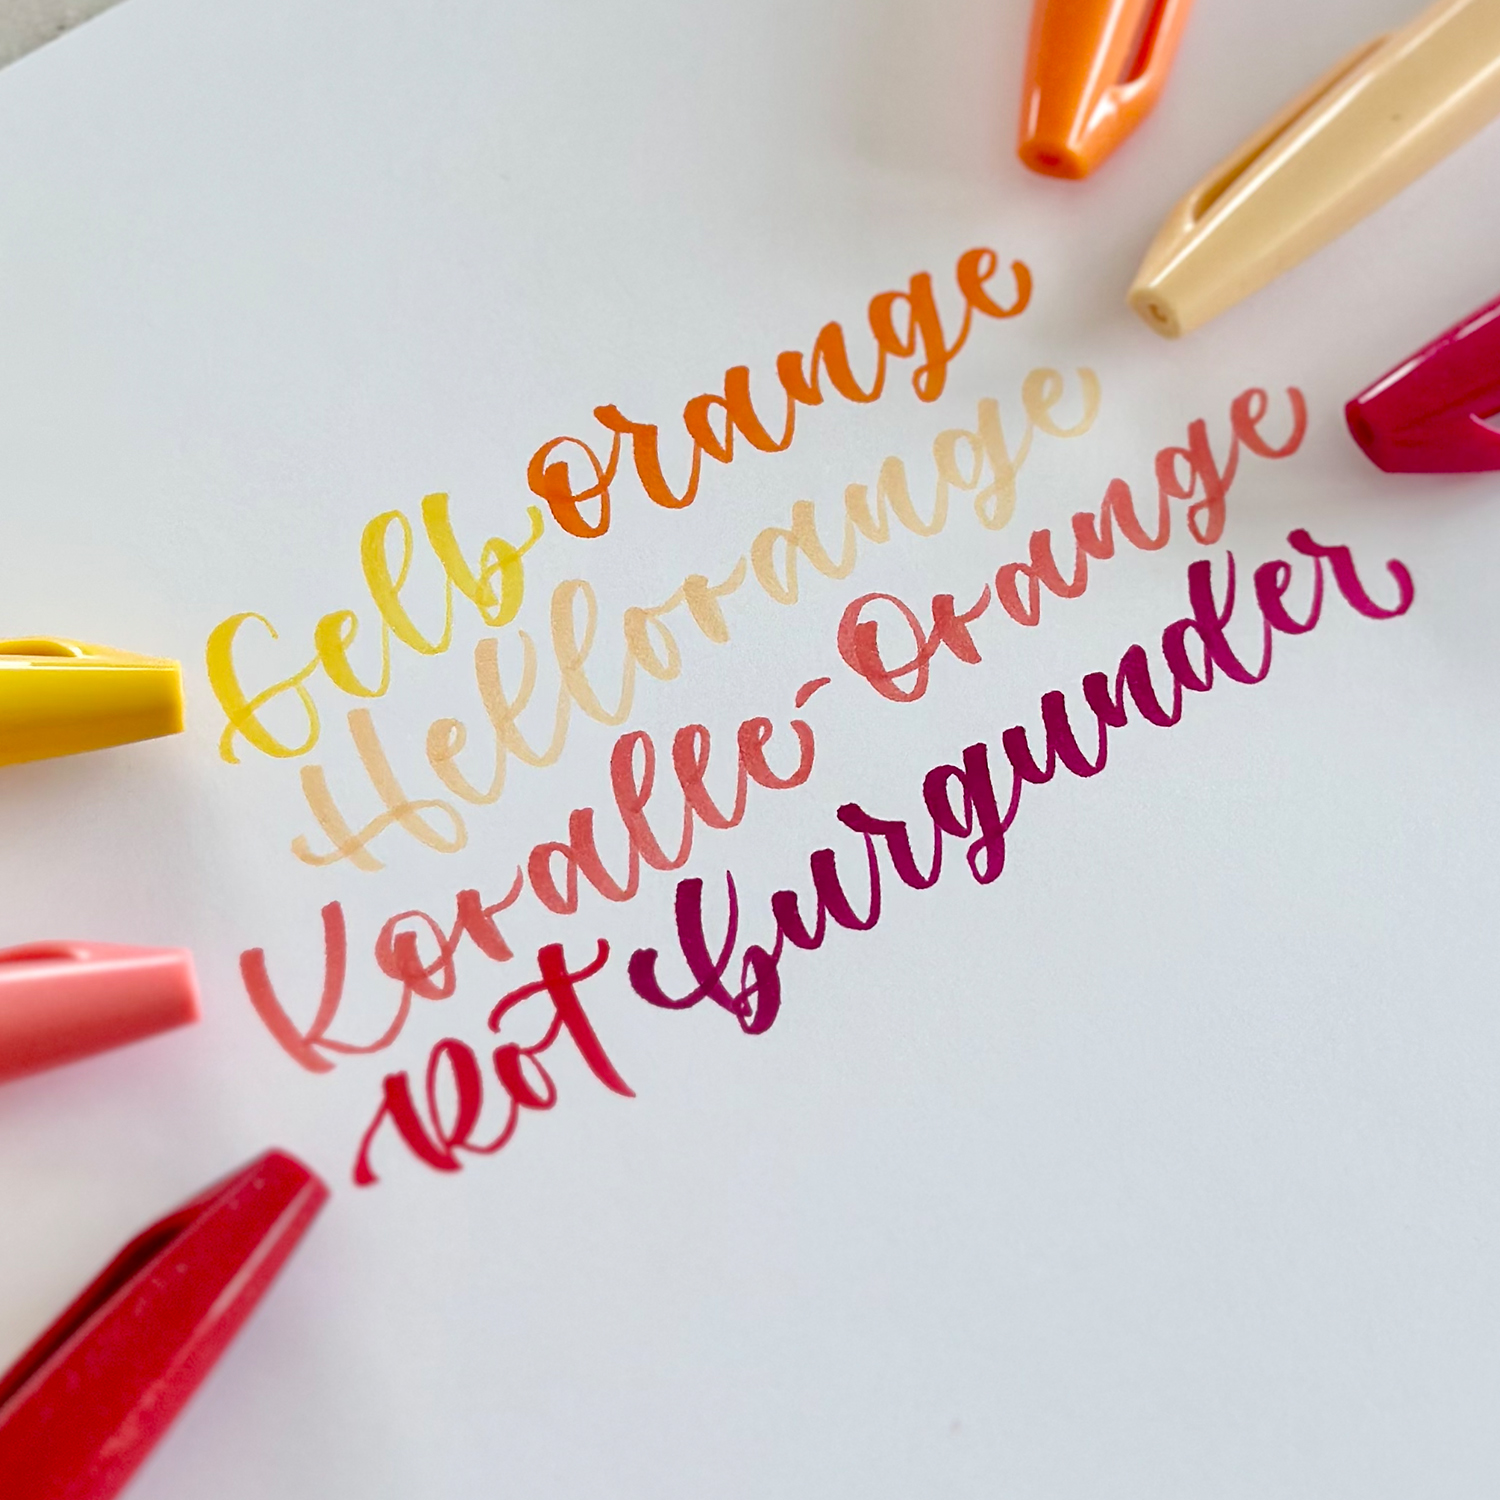 Gelb orange
Hellorange
Koralle-Orange
Rot Burgunder